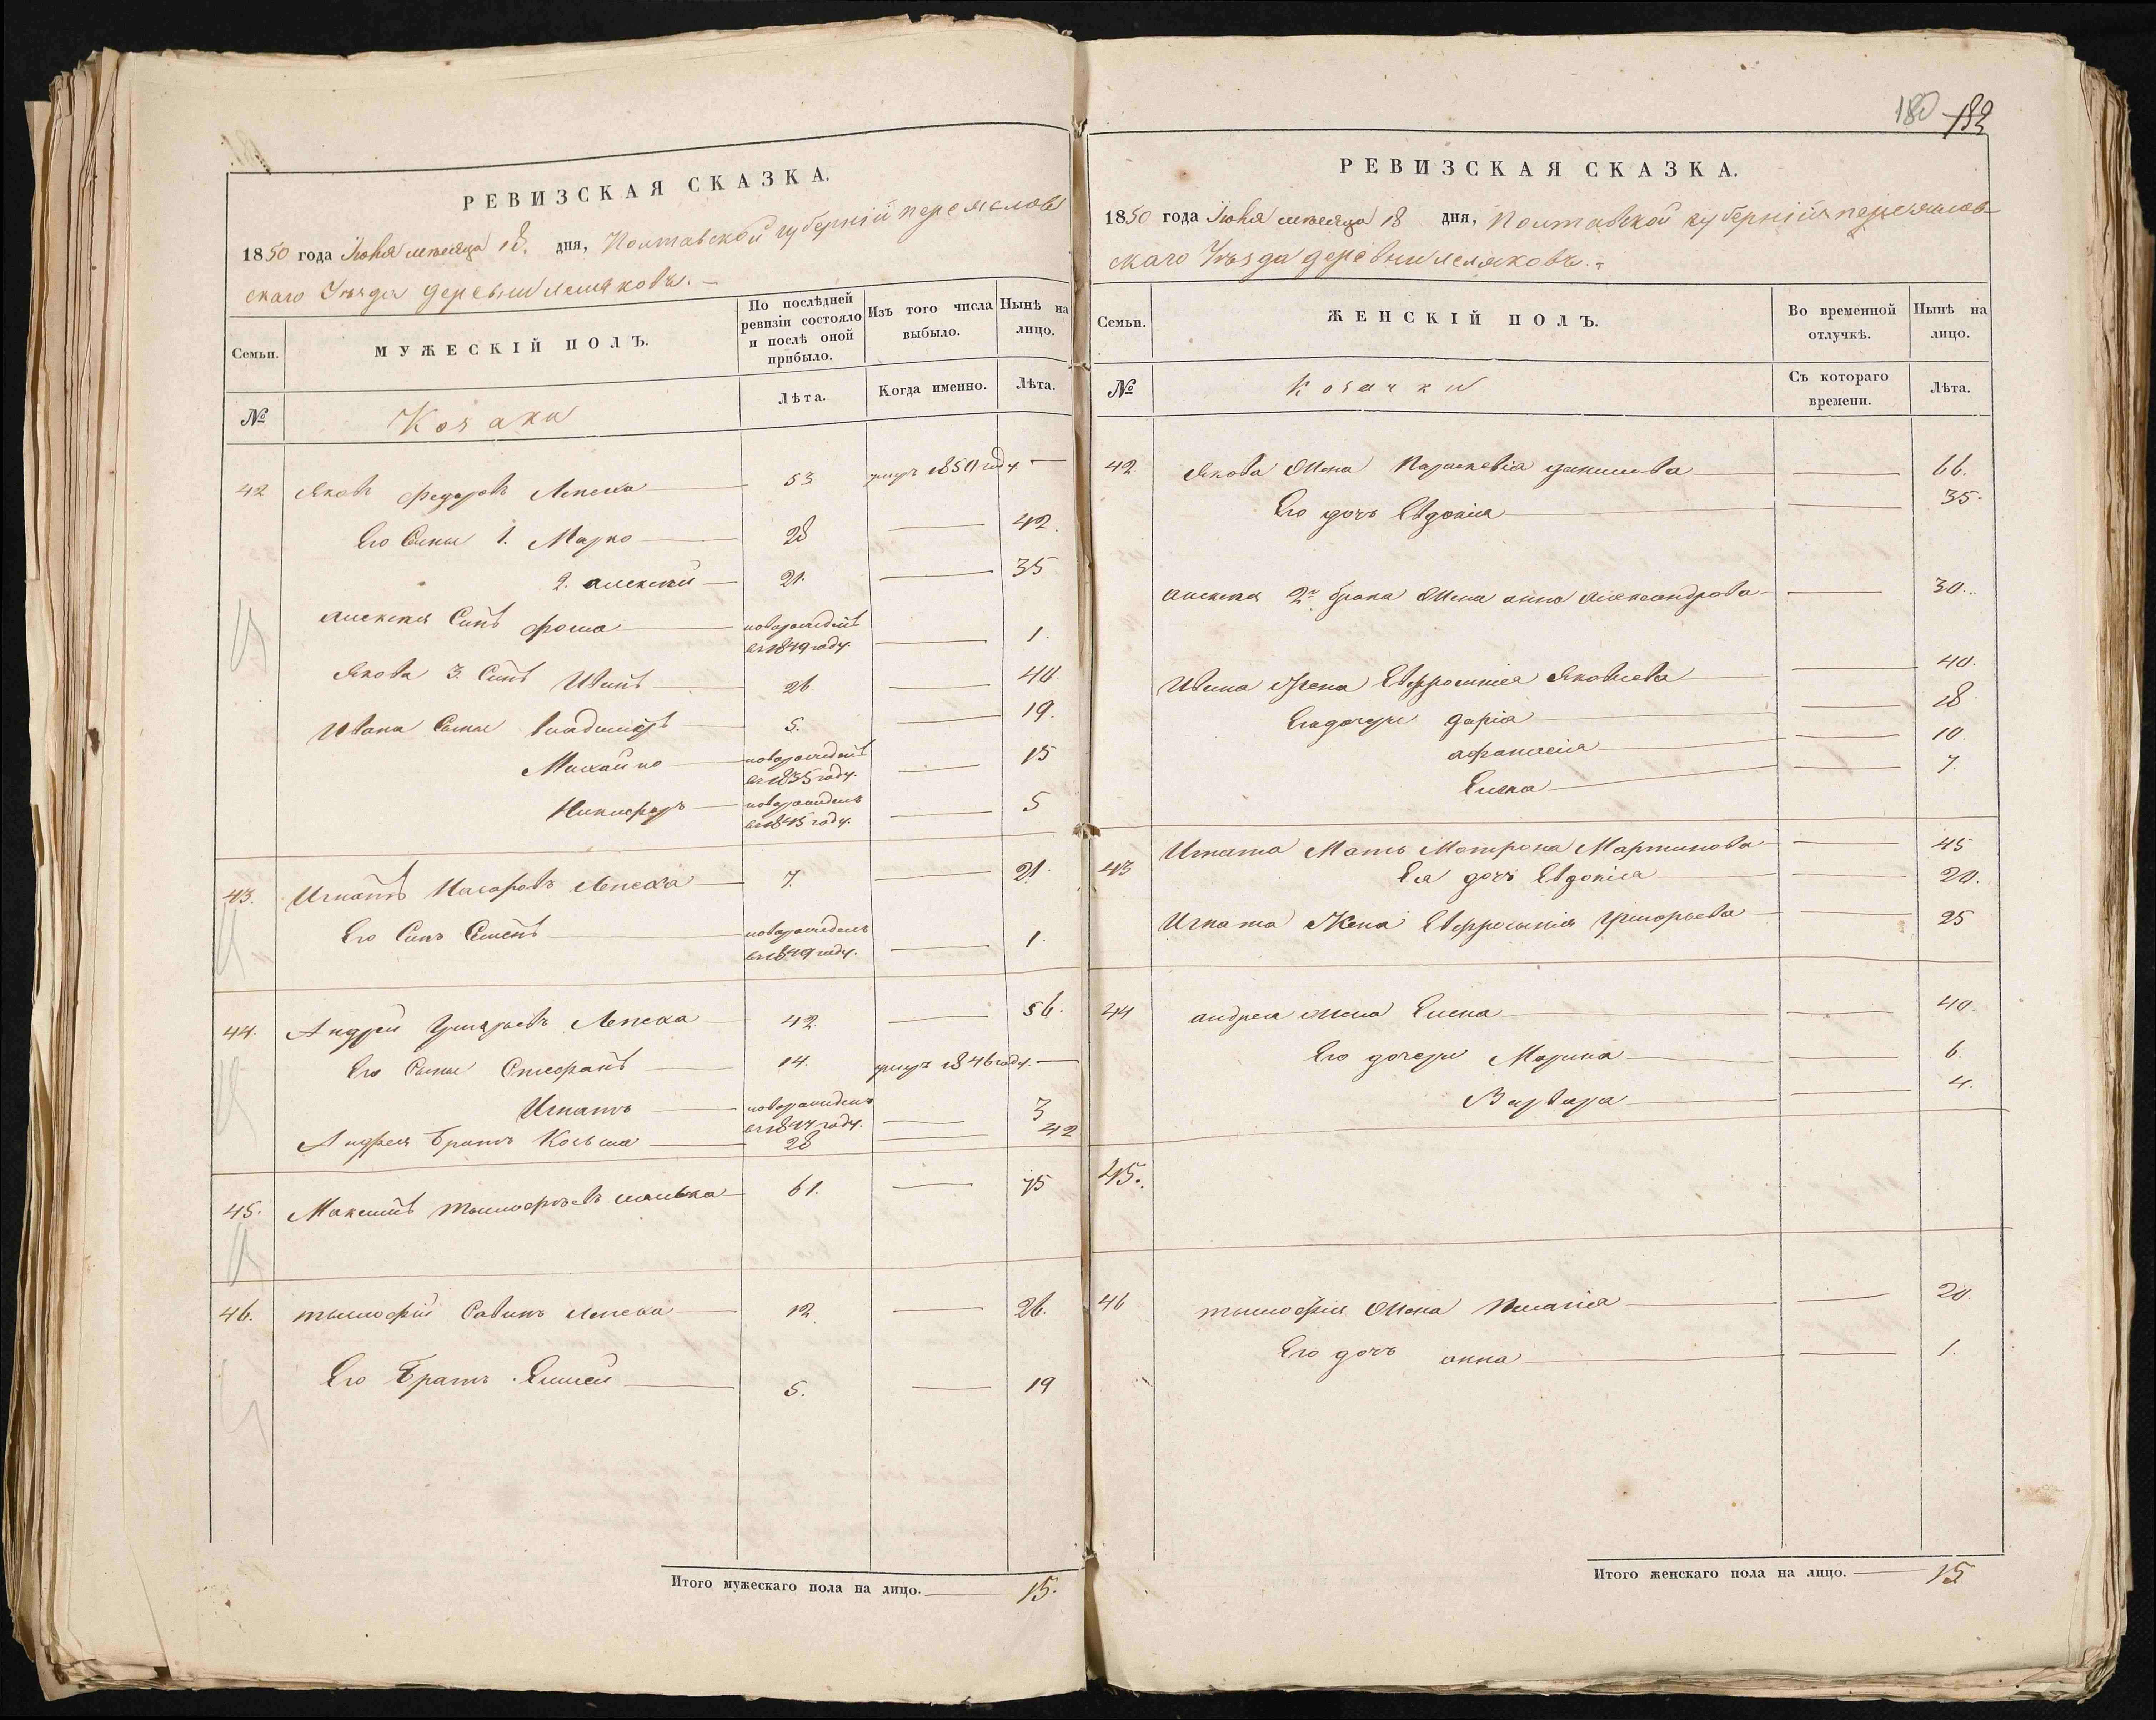 РЕВИЗСКАЯ СКАЗКА.
1850 года Июня месяца 18. дня, Полтавской губерніи переяслов
скаго Уезда деревни
Семьи.
МУЖЕСКІЙ ПОЛЪ.
По послѣдней ревизіи состояло и послѣ оной прибыло.
Изъ того числа выбыло.
Нынѣ на лицо.
№
Козаки
Лѣта.
Когда именно.
Лѣта.
42 Яковъ Федоровъ 53 умръ 1850 году. —
Его Сыны 1. Марко 28 42.
2. алексей 21. 35
алексея Синъ фома новорожденъ въ 1849 году. 1.
Якова 3. Синъ Иванъ 26 40.
Ивана Сыны владимиръ 5. 19.
Михайло новорожденъ въ 1835 году. 15
Никифоръ новорожденъ въ 1845 году. 5
43. Игнатъ Назаровъ 7. 21.
Его Синъ Семенъ новорожденъ въ 1849 году. 1.
44. Андрей Григорьевъ 42 56.
Его Сыны Стефанъ 14. умръ 1846 году. —
Игнатъ новорожденъ въ 1847 году. 3
Андрея Братъ Козьма 28 42
45. Максимъ тимофѣевъ 61. 75
46. тимофій Савинъ 12 26.
Его Братъ Елисей 5. 19
Итого мужескаго пола на лицо. 15.
180 182
РЕВИЗСКАЯ СКАЗКА.
1850 года Июня месяца 18 дня, Полтавской губерніи переяслов-
скаго Уѣзда деревни
Семьи.
ЖЕНСКІЙ ПОЛЪ.
Во временной отлучкѣ.
Нынѣ на лицо.
№
Козачки
Съ котораго времени.
Лѣта.
42 Якова Жена Параскевія данилова 66.
Его дочь Евдокія 35.
алексея 2го брака Жена анна александрова 30.
Ивана Жена Евфросинія Яковлева 40.
Его дочери дарія 18
афанасія 10.
Елена 7.
43 Игната Мать Матрона Мартинова 45
Ея дочь Евдокія 20.
Игната Жена Евфросинія Григорьева 25
44 андрея жена Елена 40.
Его дочери Марина 6.
Варвара 4.
45.
46 тимофія Жена Пелагія 20
Его дочь анна 1.
Итого женскаго пола на лицо. 15